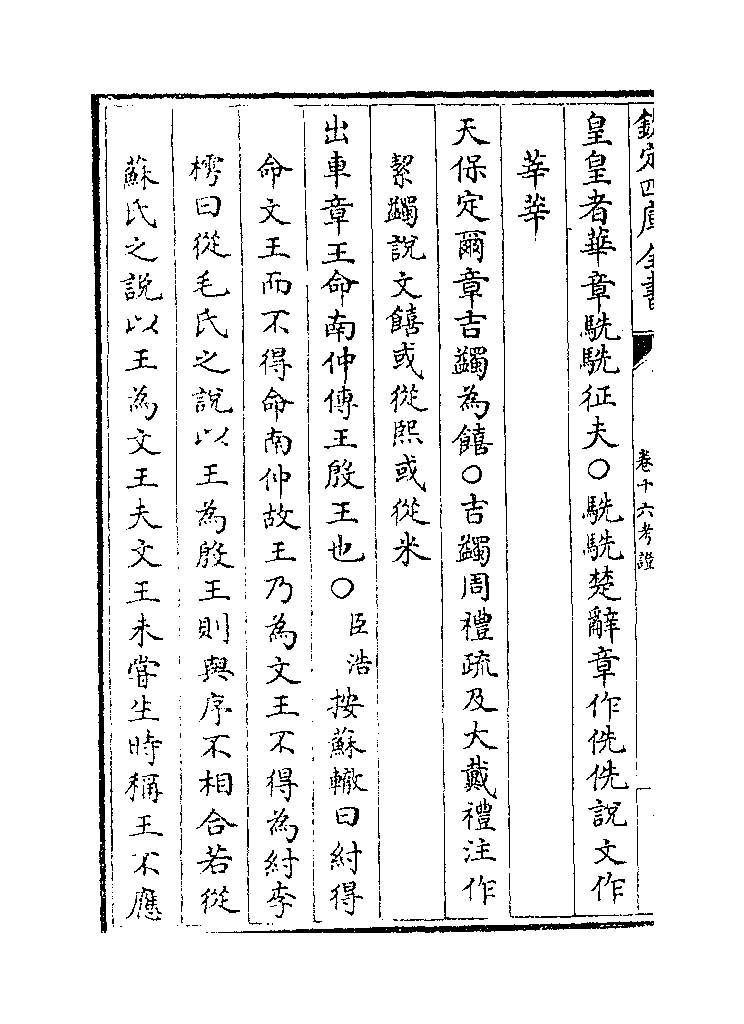 欽定四庫全書
卷十六考證
皇皇者華章駪駪征夫〇駪駪楚辭章作侁侁說文作
莘莘
天保定爾章吉蠲為饎〇吉蠲周禮疏及大戴禮注作
絜蠲說文饎或從熙或從米
出車章王命南仲傳王殷王也〇臣浩按蘇轍曰紂得
命文王而不得命南仲故王乃為文王不得為紂李
樗曰從毛氏之說以王為殷王則與序不相合若從
蘇氏之說以王為文王夫文王未嘗生時稱王不應